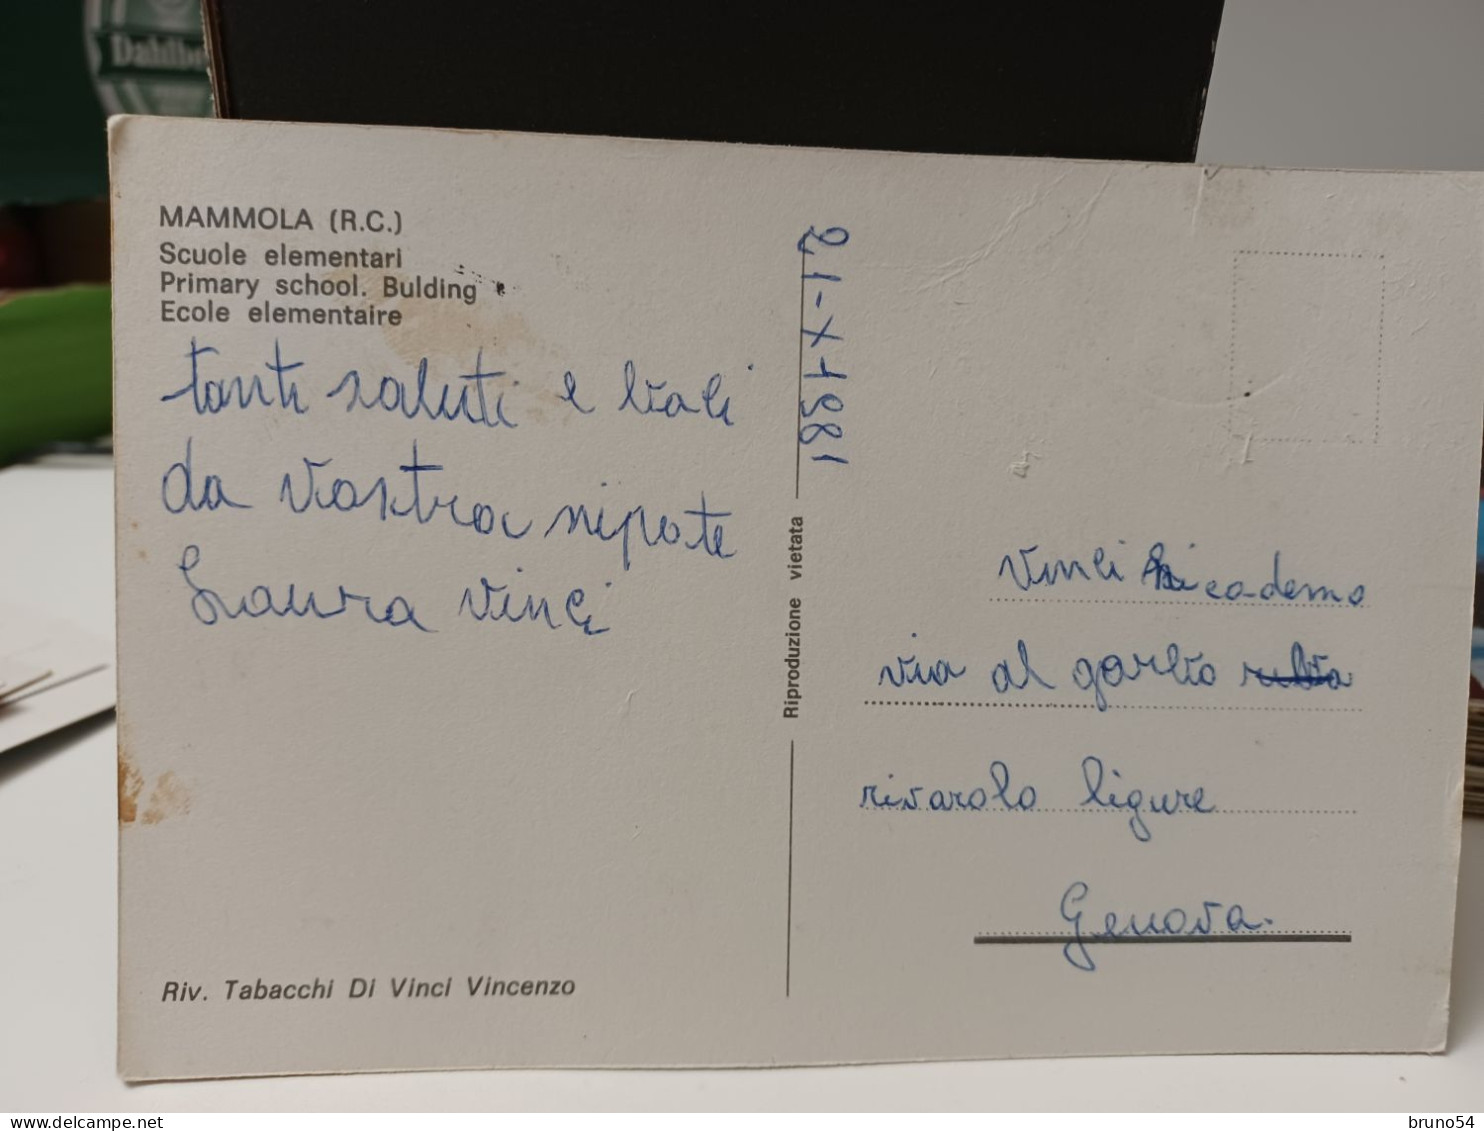 Dahlbe
MAMMOLA (R.C.)
Scuole elementari
Primary school. Bulding
Ecole elementaire
tanti saluti e baci
da vostra nipote
Laura Vinci
Riv. Tabacchi Di Vinci Vincenzo
21-X-1981
Riproduzione vietata
Vinci Nicodemo
via al garbo
rivarolo ligure
Genova.
bruno54